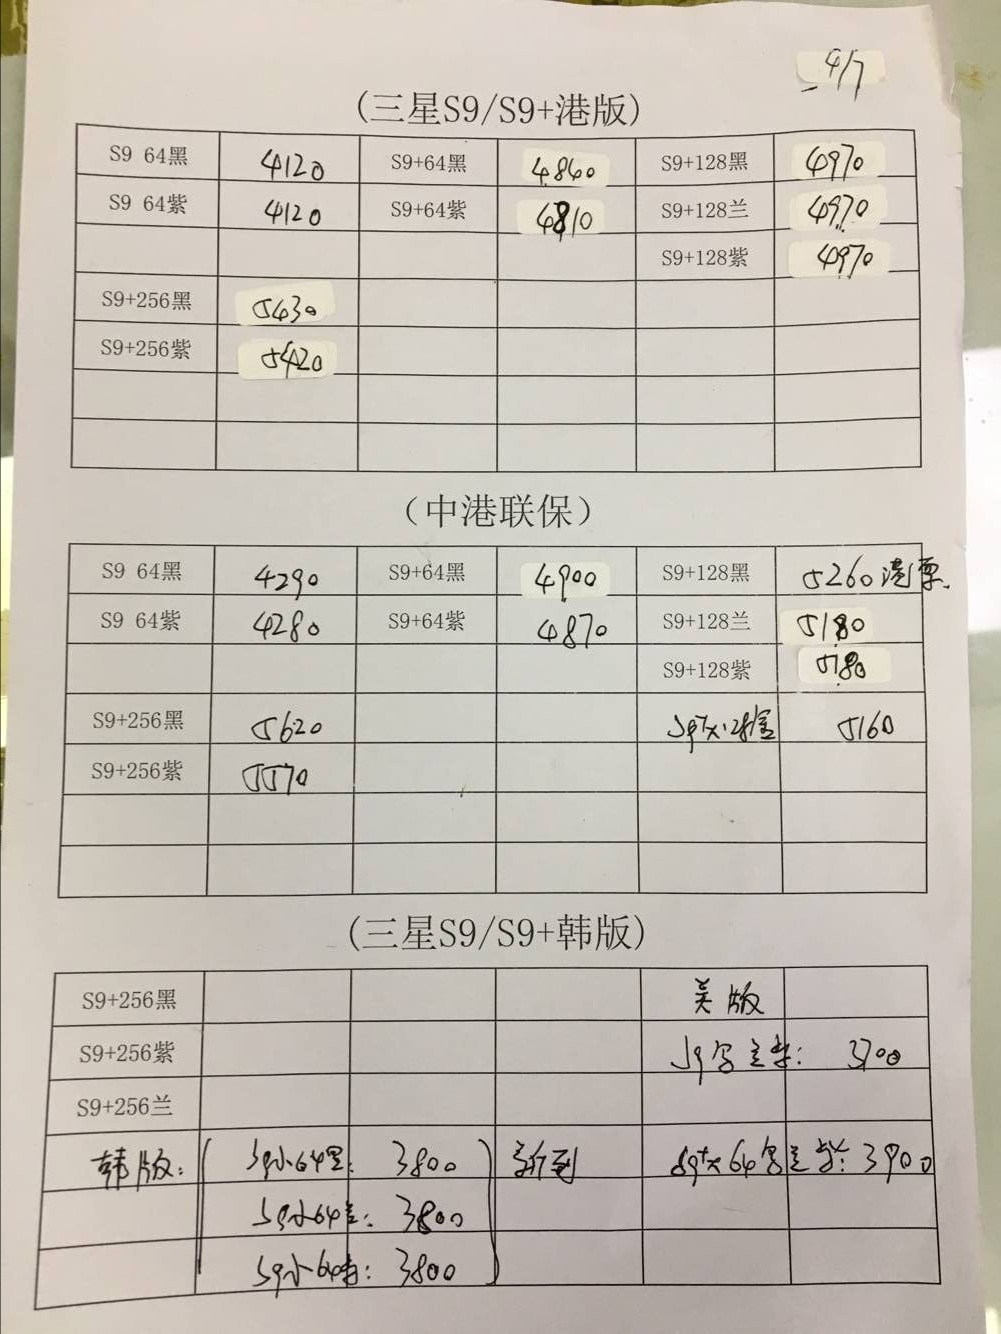 4/7
(三星S9/S9+港版)
S9 64黑 4120 S9+64黑 4860 S9+128黑 4970
S9 64紫 4120 S9+64紫 4810 S9+128兰 4970
S9+128紫 4970
S9+256黑 5430
S9+256紫 5420
(中港联保)
S9 64黑 4290 S9+64黑 4900 S9+128黑 5260港票
S9 64紫 4280 S9+64紫 4870 S9+128兰 5180
S9+128紫 5180
S9+256黑 5620 5160
S9+256紫 5570
(三星S9/S9+韩版)
S9+256黑 美版
S9+256紫 S9 3700
S9+256兰
韩版: S9小64黑: 3800 新到 S9+大64 3900
S9小64兰: 3800
S9小64 : 3800